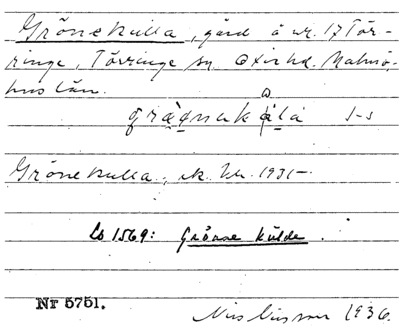 Grönekulla, gård å nr. 17 Tör-
ringe, Törringe sn Oxie hd. Malmö-
hus län.
Grönekulla, ek. kn. 1931–
Lb 1569: Grönne kulde.
Nr 5751.
Nils Nilsson 1936.